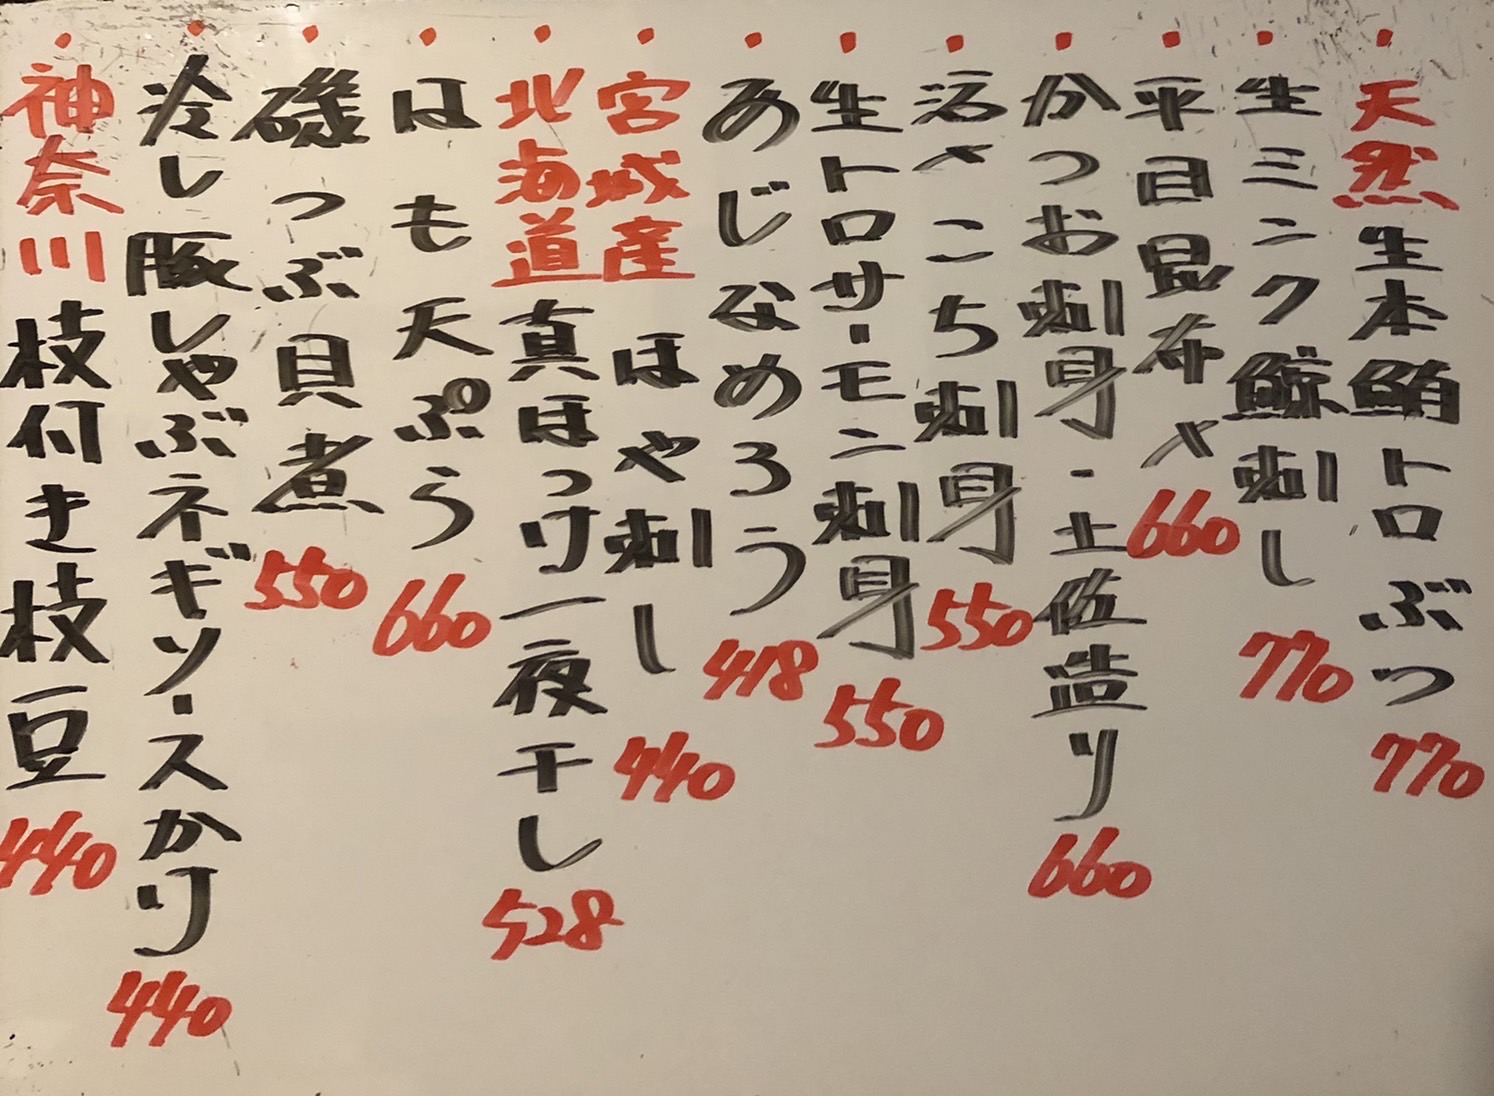 ・天然生本鮪トロぶつ 770
・生ミンク鯨刺し 770
・平目昆布〆 660
・かつお刺身・土佐造り 660
・活〆こち刺身 550
・生トロサーモン刺身 550
・あじなめろう 418
・宮城産ほや刺し 440
・北海道真ほっけ一夜干し 528
・はも天ぷら 660
・磯つぶ貝煮 550
・冷し豚しゃぶネギソースかけ 440
・神奈川枝付き枝豆 440